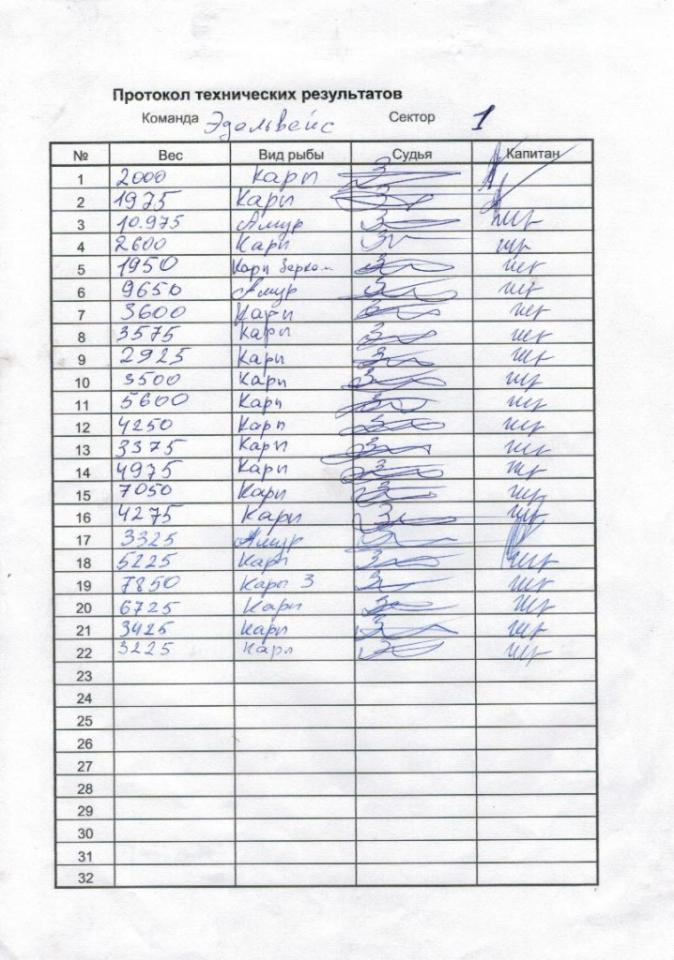 Протокол технических результатов
Команда Эдольвейс Сектор 1
№ Вес Вид рыбы Судья Капитан
1 2000 Карп
2 1975 Карп
3 10.975 Амур
4 2600 Карп
5 1950 Карп зеркал
6 9650 Амур
7 3600 Карп
8 3575 Карп
9 2925 Карп
10 3500 Карп
11 5600 Карп
12 4250 Карп
13 3375 Карп
14 4975 Карп
15 7050 Карп
16 4275 Карп
17 3325 Амур
18 5225 Карп
19 7850 Карп З
20 6725 Карп
21 3425 Карп
22 3225 Карп
23
24
25
26
27
28
29
30
31
32